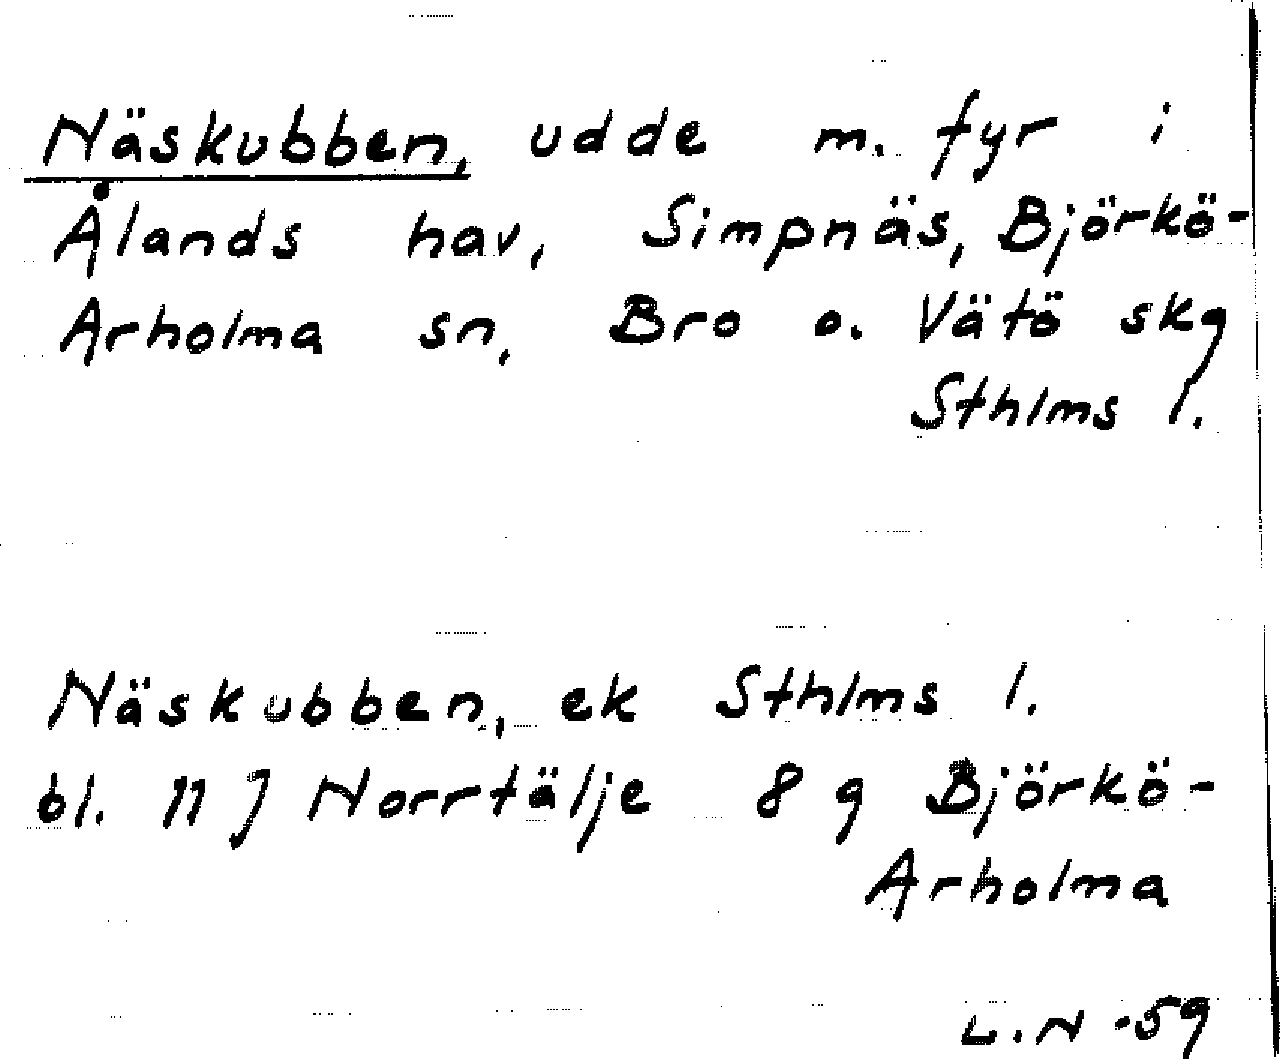 Näskubben, udde m. fyr i
Ålands hav, Simpnäs, Björkö-
Arholma sn, Bro o. Vätö skg
Sthlms l.
Näskubben, ek Sthlms l.
bl. 11 J Norrtälje 8 g Björkö-
Arholma
L.N -59